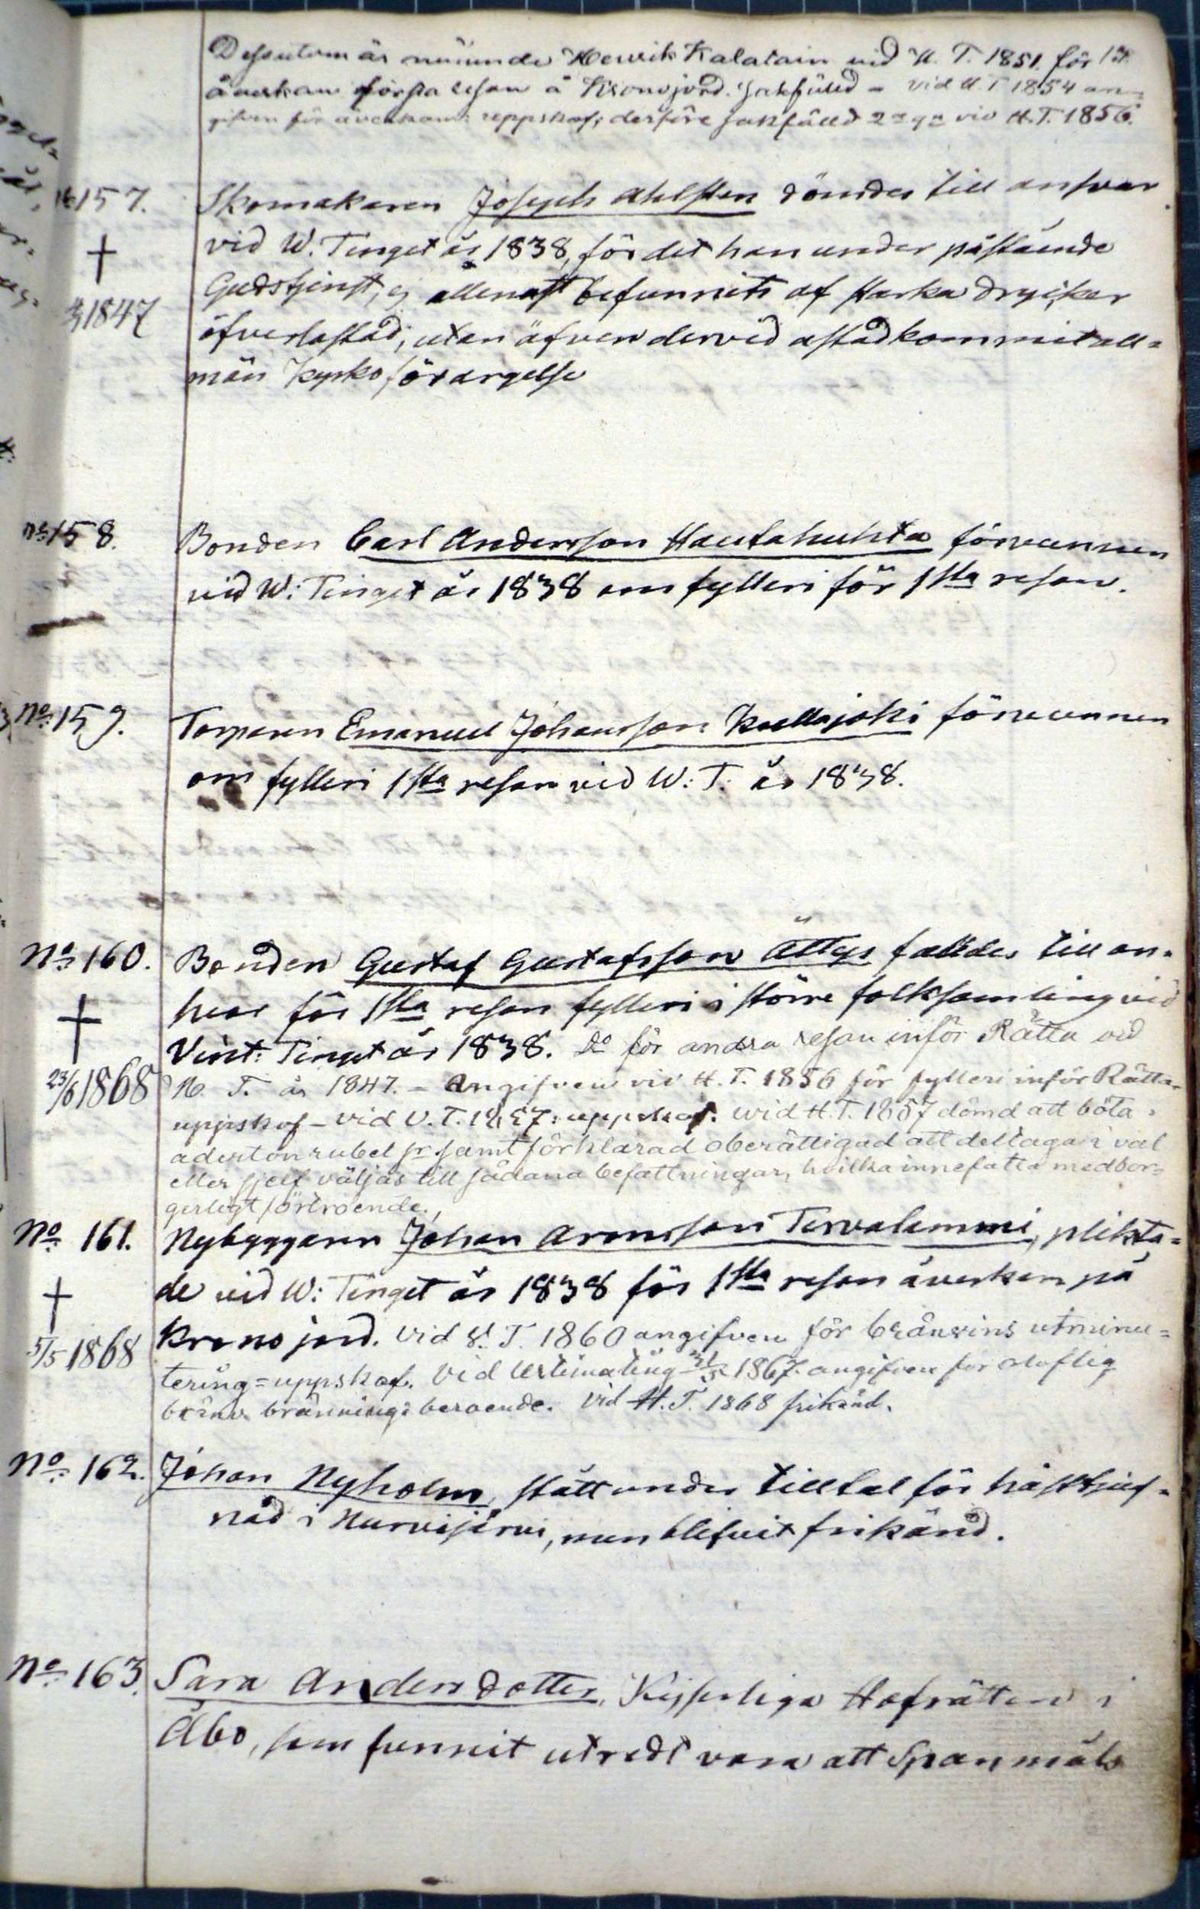 Dessutom är nämnde Henrik Kalatain vid H. T. 1851 för 1sta
åverkan första resan å Kronojord sakfälld - vid H. T 1854 an-
gifven för åverkan: uppskof; derföre sakfälld 2a gn vid H. T. 1856.
No 157. Skomakaren Joseph Ahlsten dömdes till ansvar
vid W: Tinget år 1838, för det han under påstående
† Gudstjenst, ej allenast befunnits af starka drycker
1847 öfverlastad, utan äfven dervid åstadkommit all-
män kyrko förargelse
No 158. Bonden Carl Andersson Hautahuhta förvunnen
vid W: Tinget år 1838 om fylleri för 1sta resan.
No 159. Torparen Emanuel Johansson Kullajoki förvunnen
om fylleri 1sta resan vid W: T: år 1838.
No 160. Bonden Gustaf Gustafsson Ättys fälldes till an-
svar för 1sta resan fylleri i större folksamling vid
† Vint: Tinget år 1838. Do för andra resan inför Rätta vid
23/8 1868 H. T. år 1847. - Angifven vid H. T. 1856 för fylleri inför Rätta-
uppskof - vid V. T. 1857: uppskof. vid H. T. 1857 dömd att böta
aderton rubel sr samt förklarad oberättigad att deltaga i val
eller sjelf väljas till sådana befattningar, hvilka innefatta medbor-
gerligt förtroende.,
No 161. Nybyggaren Johan Aronsson Tervalammi, plikta-
de vid W: Tinget år 1838 för 1sta resan åverkan på
†
5/5 1868 Krono jord. Vid V. T. 1860 angifven för bränvins utminu-
tering = uppskof. Vid Urtima ting 1867 angifven för olaflig
bränv. bränning: beroende. Vid H. T. 1868 frikänd.
No 162. Johan Nyholm stått under tilltal för häststjuf-
nad i Nurmijärvi, men blifvit frikänd.
No 163. Sara Andersdotter, Kejserliga Hofrätten i
Åbo, som funnit utredt vara att Spanmåls